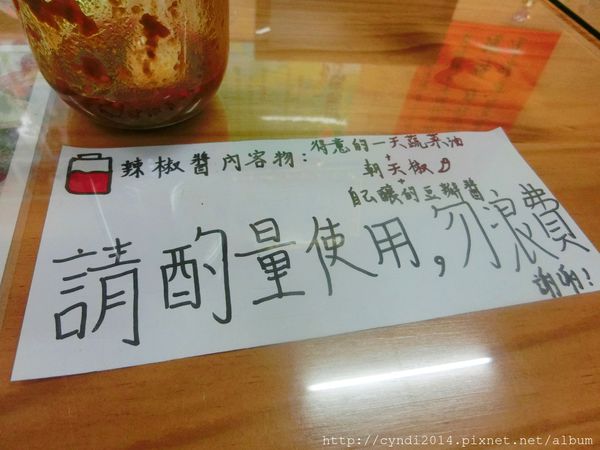 辣椒醬內容物：得意的一天蔬菜油
+
朝天椒
+
自己釀的豆瓣醬
請酌量使用，勿浪費
謝謝！
http://cyndi2014.pixnet.net/album